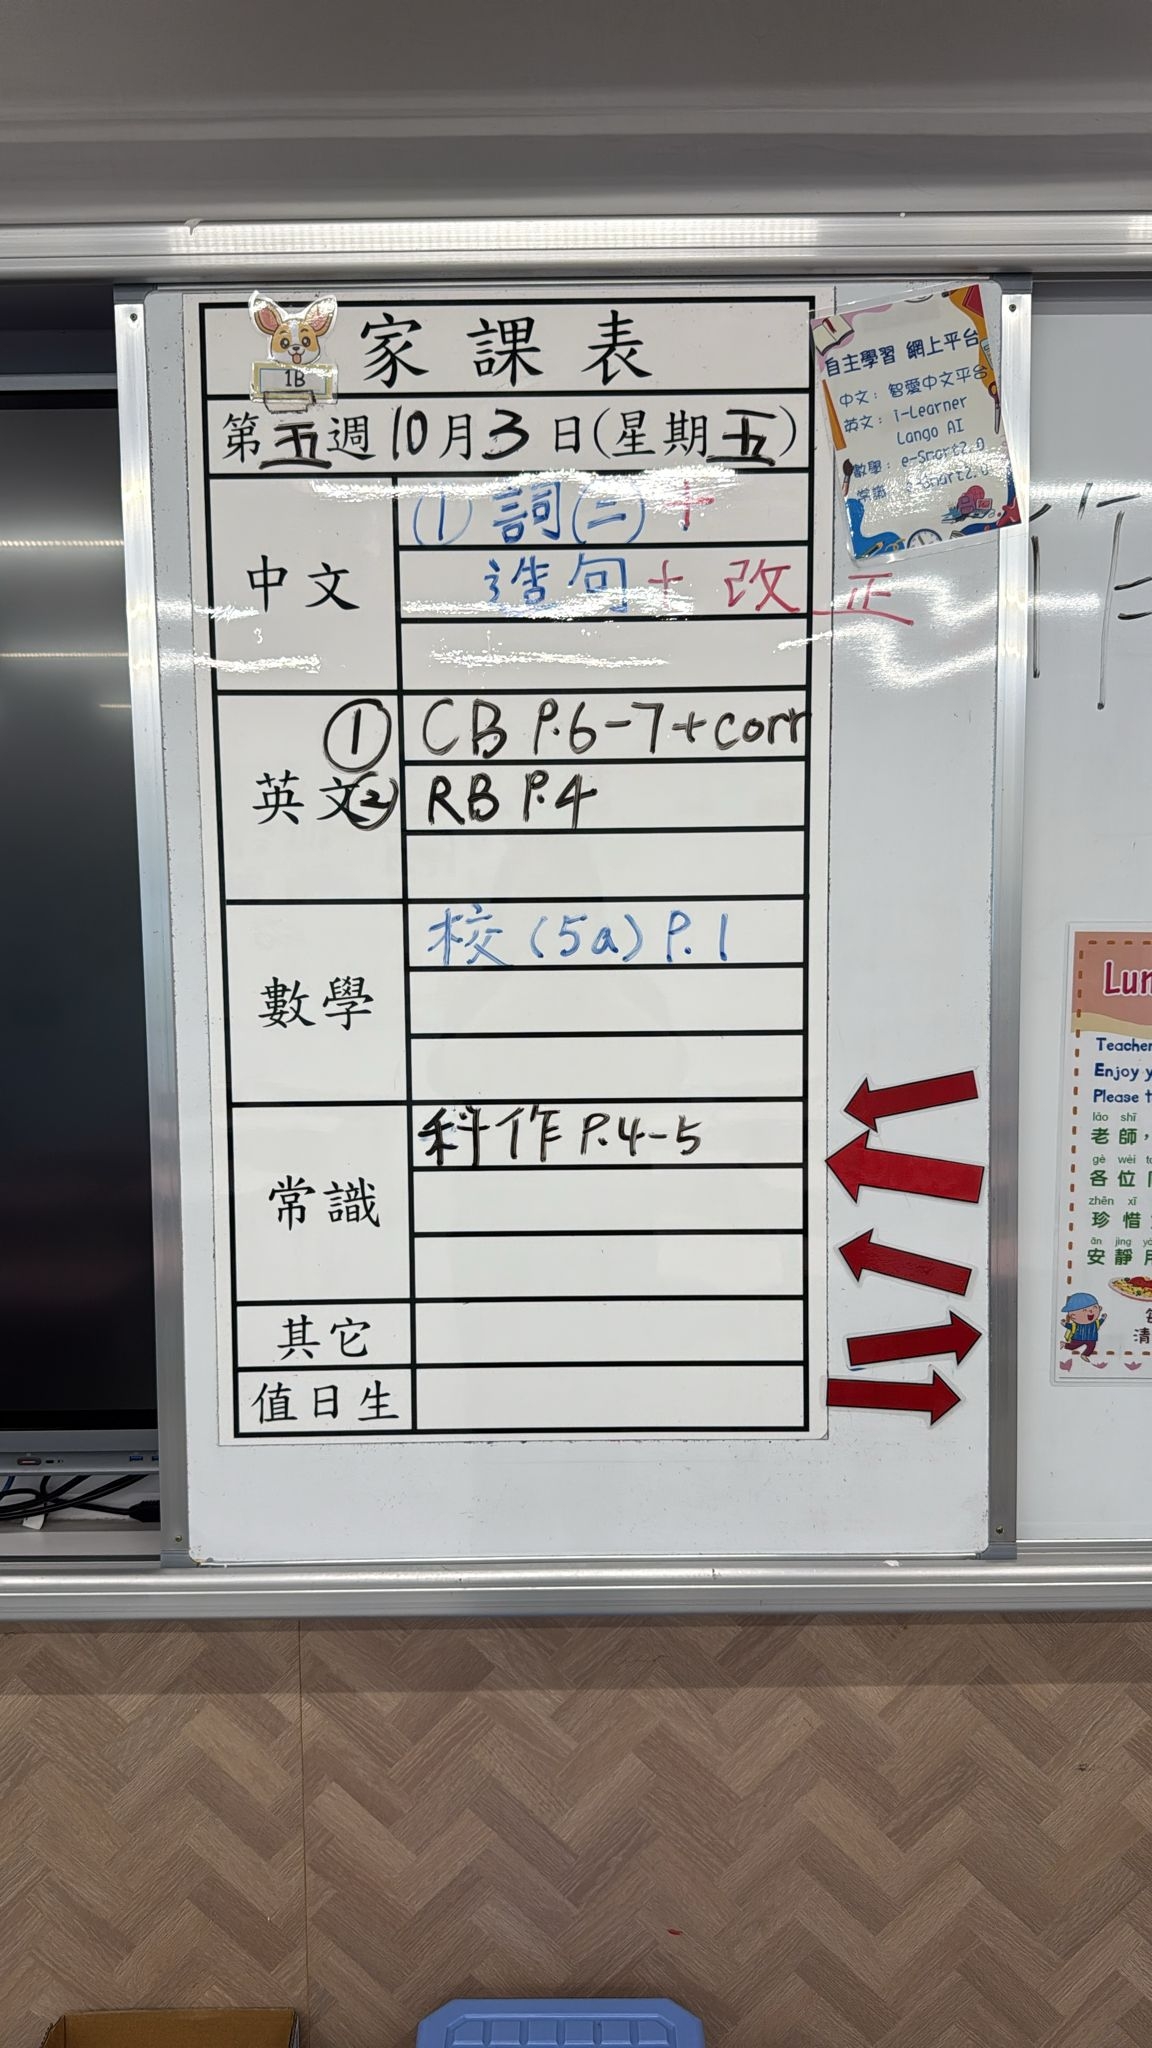 家課表
1B
第五週10月3日(星期五)
中文
① 詞(二)+
造句+改正
英文
① CB P.6-7+corr
② RB P.4
數學
校(5a) P.1
常識
科作 P.4-5
其它
值日生
自主學習 網上平台
中文：智愛中文平台
英文：i-Learner
Lango AI
數學：e-Smart2.0
常識：e-Smart2.0
Lun
Teacher
Enjoy y
Please t
lǎo shī
老師，
gè wèi
各位
zhēn xī
珍惜
ān jìng
安靜
清